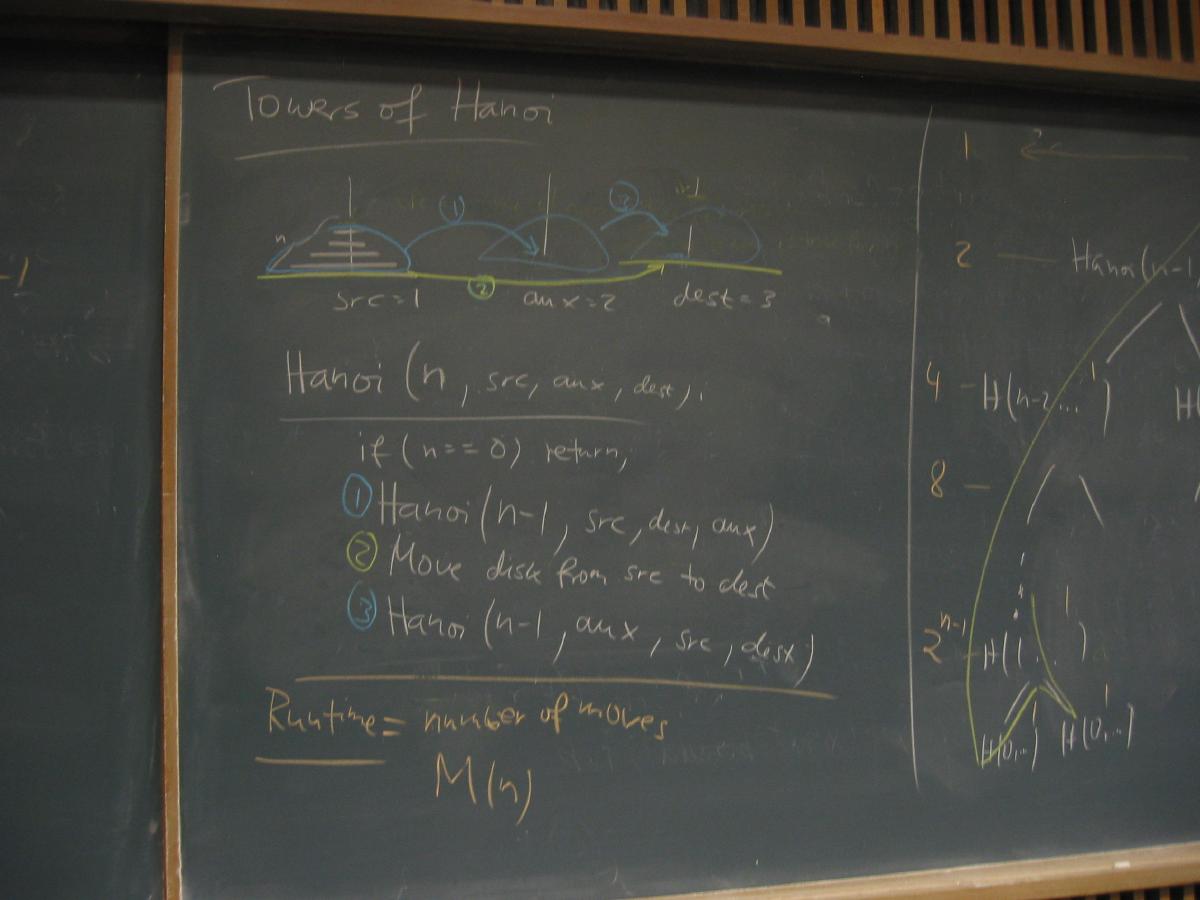 Towers of Hanoi
n ① ③ n-1
②
src=1 aux=2 dest=3
Hanoi (n, src, aux, dest);
if (n==0) return;
① Hanoi (n-1, src, dest, aux)
② Move disk from src to dest
③ Hanoi (n-1, aux, src, dest)
Runtime = number of moves
M(n)
-1
1
2 — Hanoi(n-1
1
4 - H(n-2...) H(
8 —
1
2^n-1 - H(1...)
1 1
H(0,..) H(0,..)